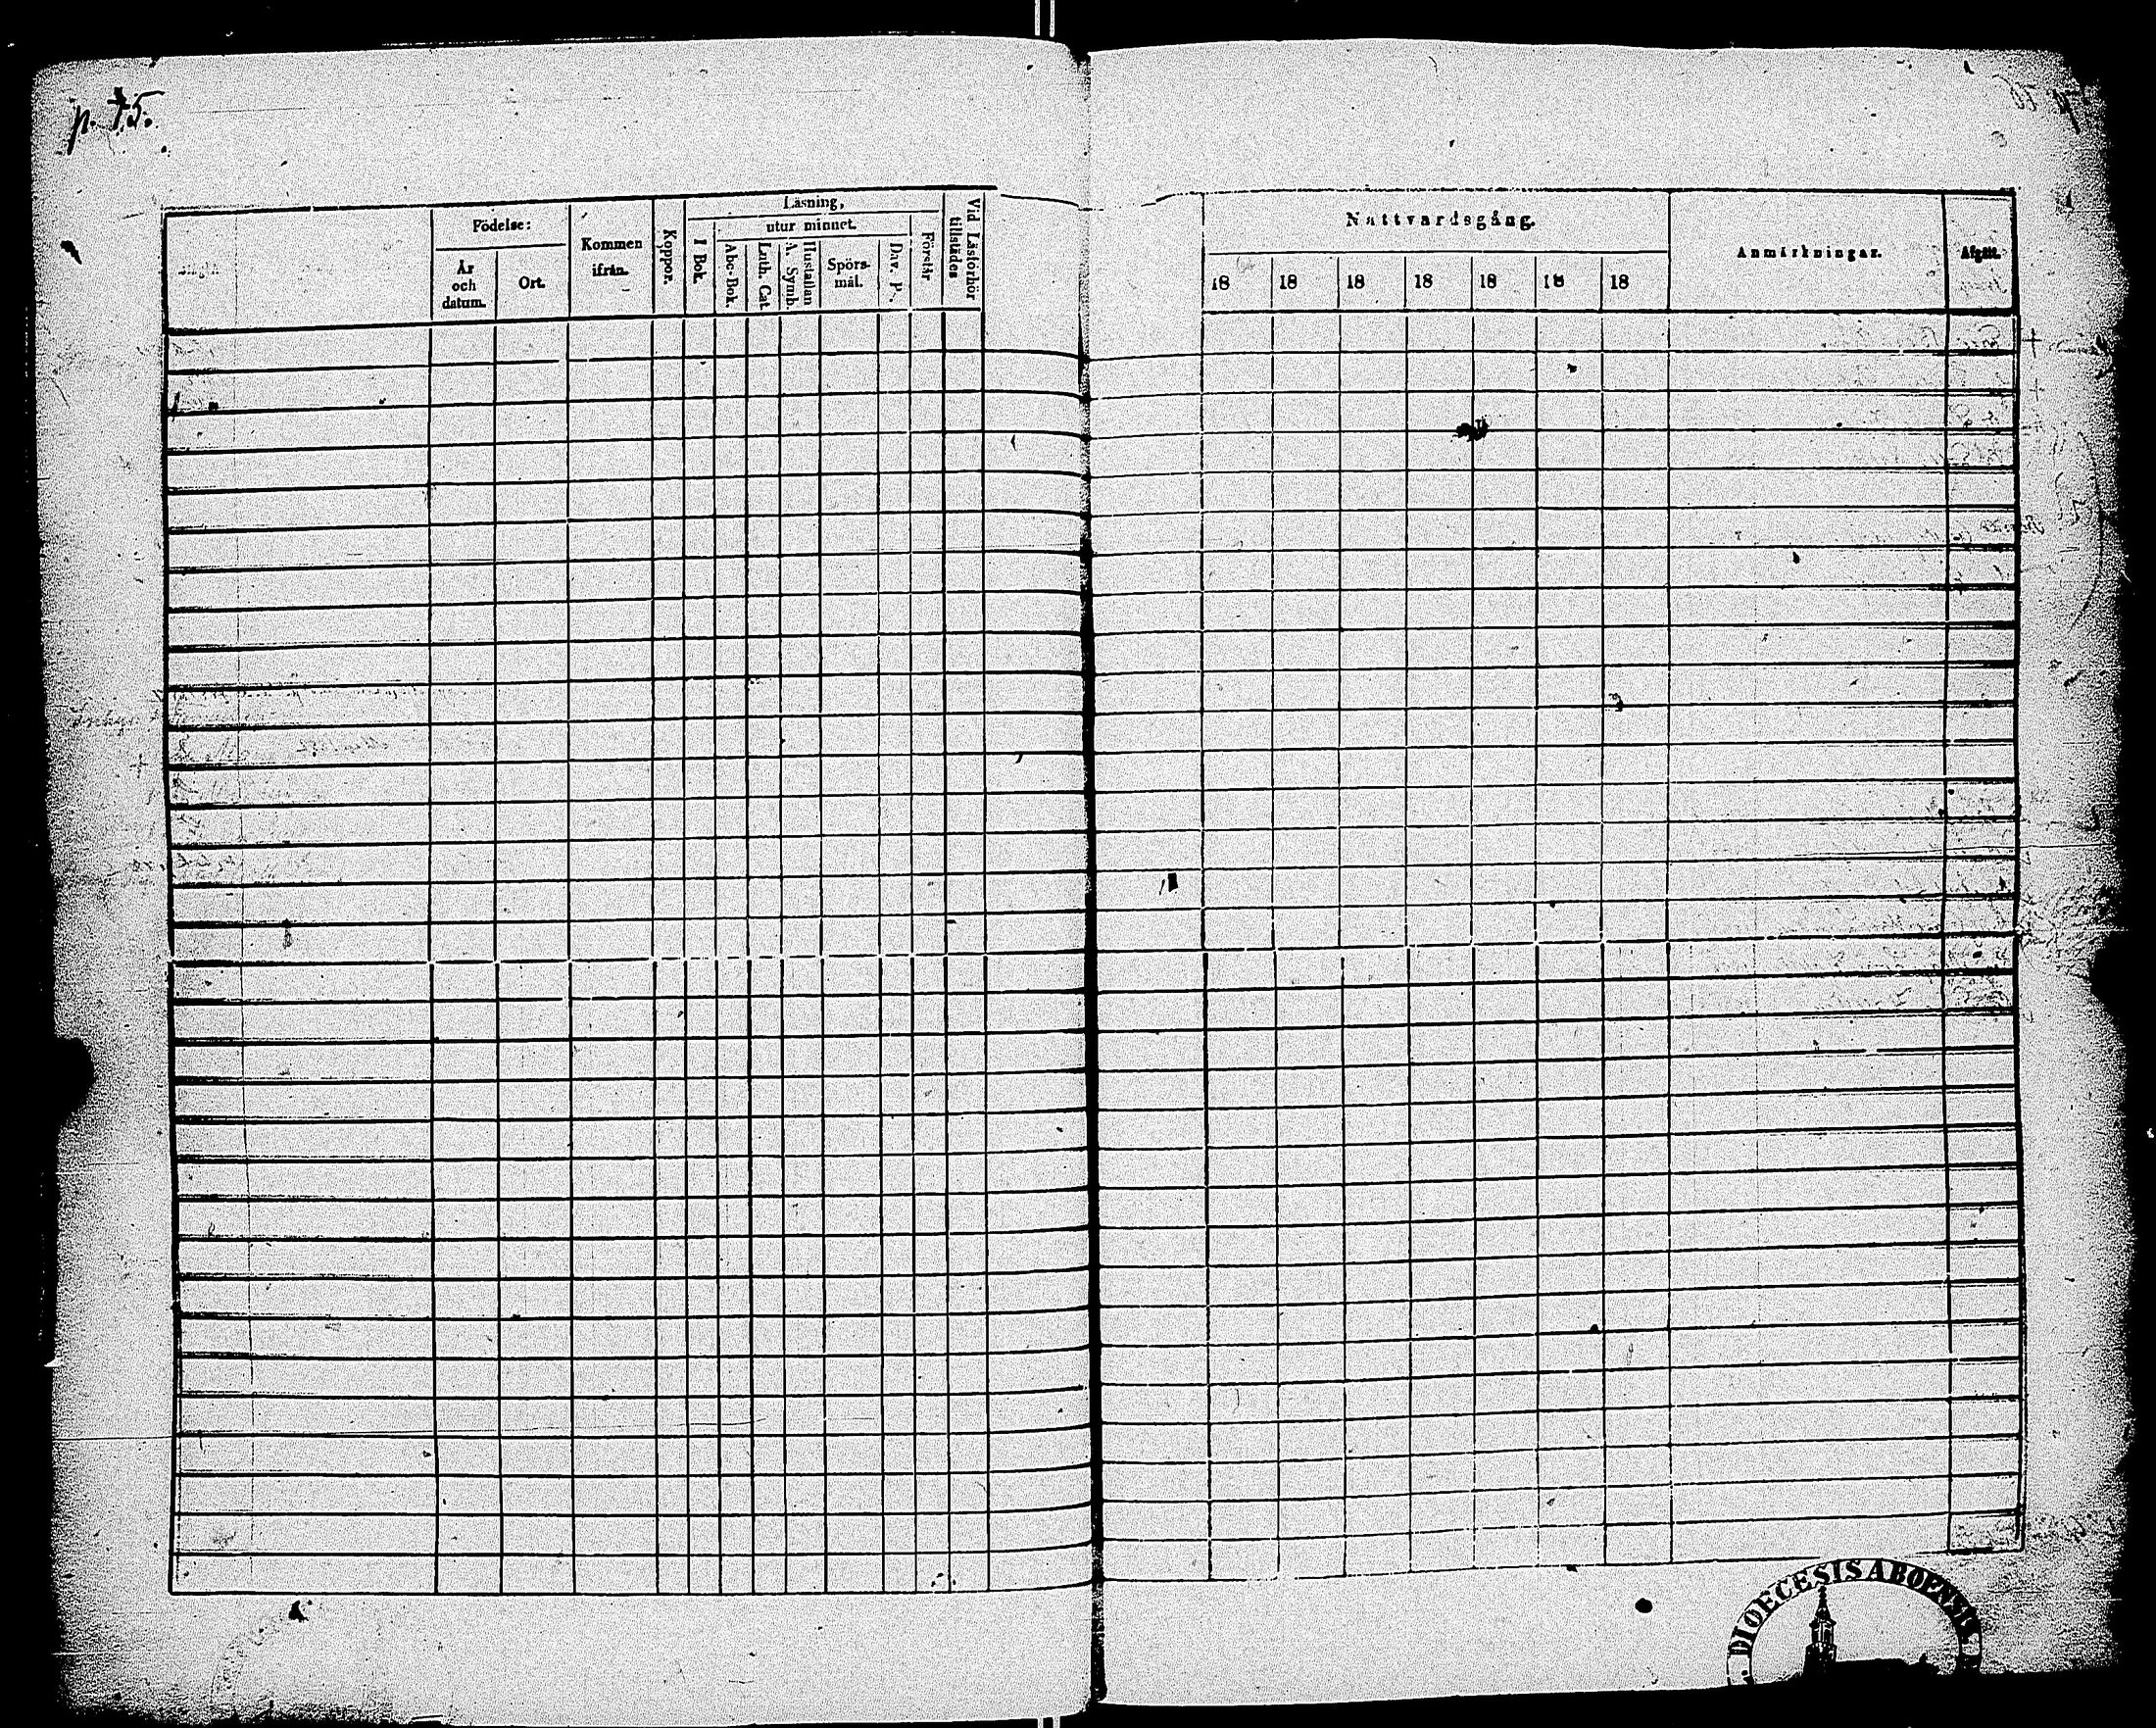 p. 75.
Födelse:
År och datum.
Ort.
Kommen ifrån.
Koppor.
Läsning,
I Bok.
utur minnet.
Abc-Bok.
Luth. Cat.
A. Symb.
Hustaflan
Spörs-
mål.
Dav. P.
Förstår
Vid Läsförhör
tillstädes
Nattvardsgång.
18 18 18 18 18 18 18
Anmärkningar.
Afgått.
DIOECESIS ABOENSIS